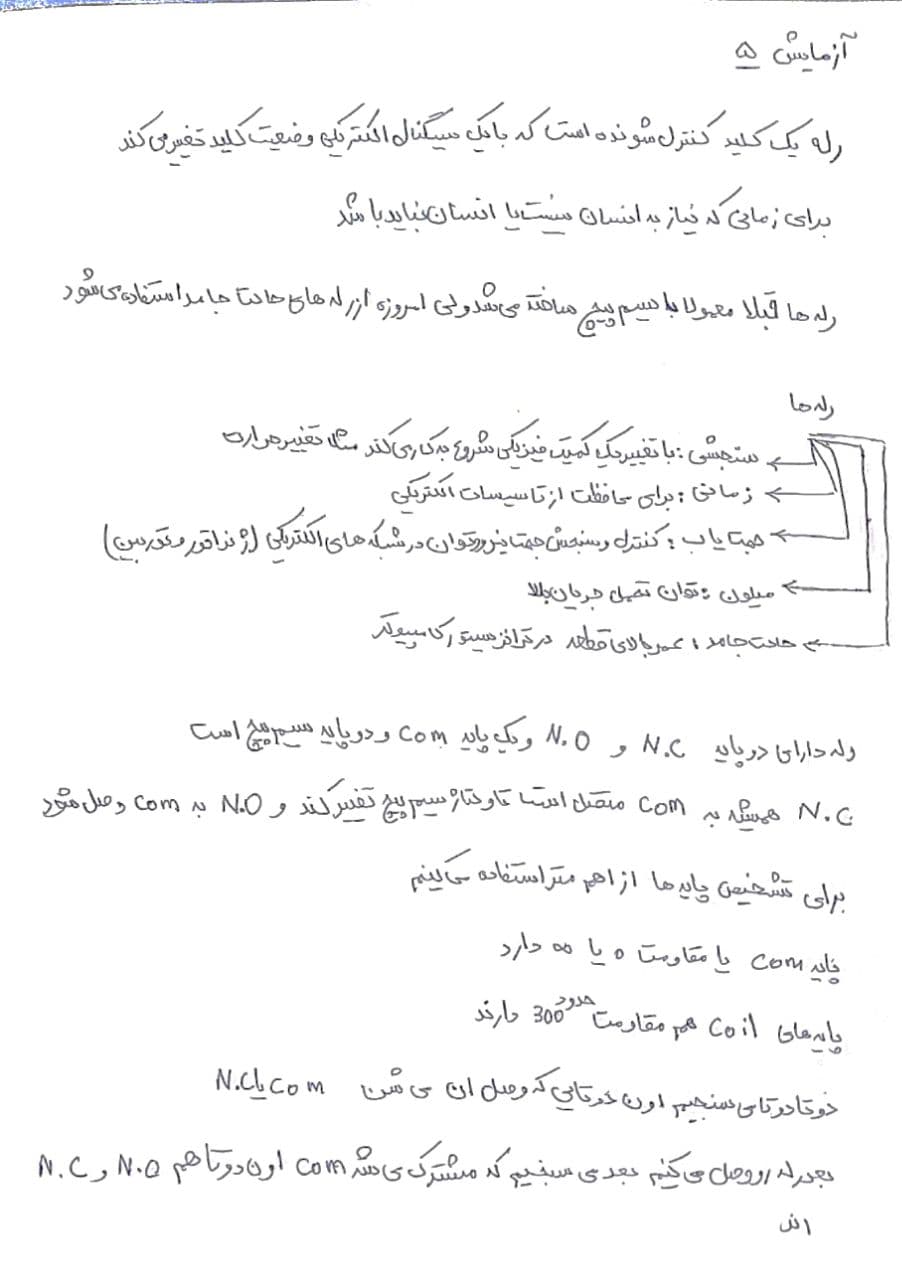 آزمایش ۵
رله یک کلید کنترل شونده است که با یک سیگنال الکتریکی وضعیت کلید تغییر می کند
برای زمانی که نیاز به انسان نیست یا انسان نباید باشد
رله ها قبلا معمولا با سیم پیچ ساخته می شد ولی امروزه از رله های حالت جامد استفاده می شود
رله ها
سنجشی : با تغییر یک کمیت فیزیکی شروع به کار می کند مثلا تغییر حرارت
زمانی : برای محافظت از تاسیسات الکتریکی
جهت یاب : کنترل و سنجش جهت در توان در شبکه های الکتریکی (ژنراتور و توربین)
میلون : توان تحمل جریان بالا
حالت جامد : عمر بالای قطعه در ترانزیستور کامپیوتر
رله دارای دو پایه N.C و N.O و یک پایه com و دو پایه سیم پیچ است
N.C همیشه به com متصل است تا ولتاژ سیم پیچ تغییر کند و N.O به com وصل شود
برای تشخیص پایه ها از اهم متر استفاده می کنیم
پایه com یا مقاومت 0 یا ∞ دارد
پایه های coil هم مقاومت حدود 300 دارند
دوتا دوتا می سنجیم اون دوتایی که وصل ان می شن com یا N.C
بعد رله رو وصل می کنیم بعد می سنجیم که مشترک می شه com اون دوتا هم N.O و N.C
اند